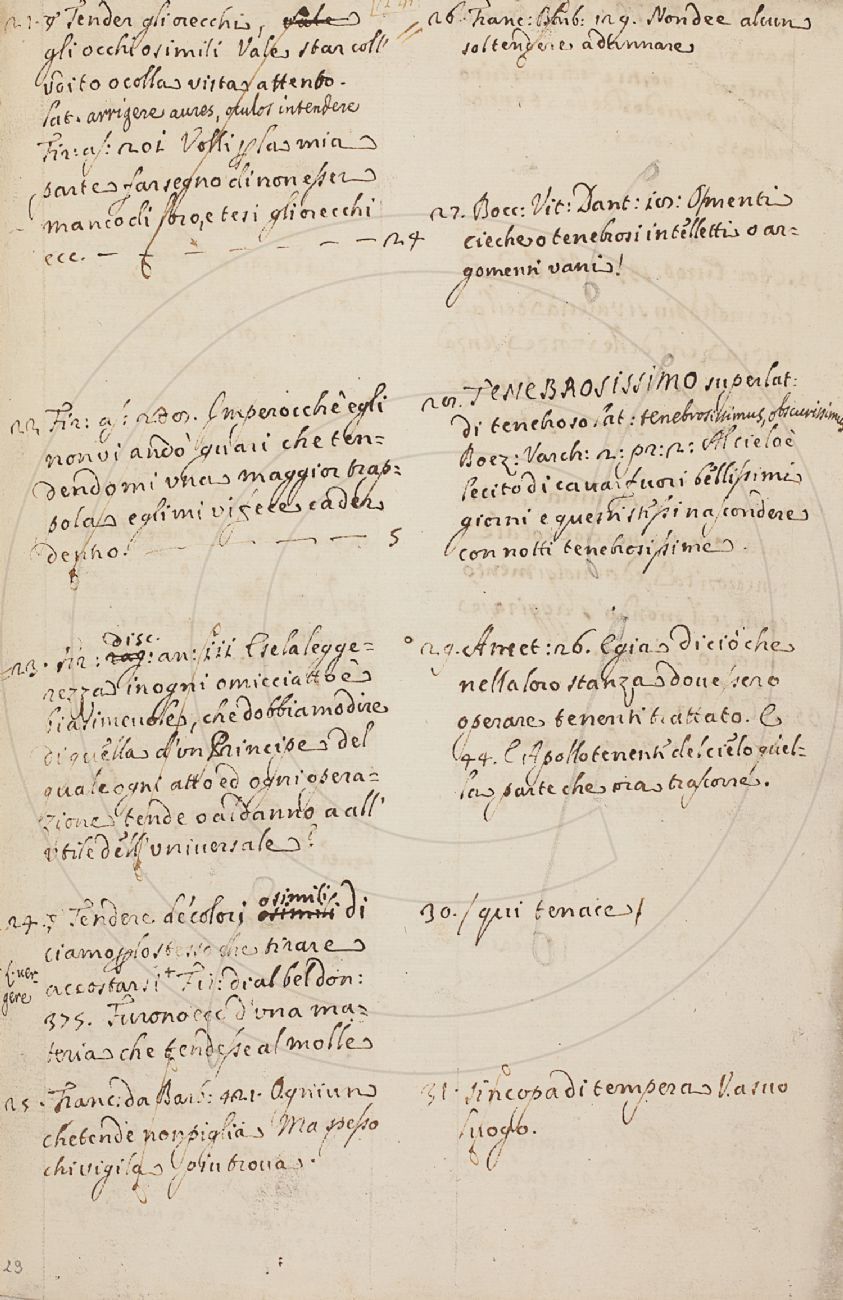 21. § Tender gli orecchi, vale
gli occhi o simili Vale star coll'
udito o colla vista attento.
lat. arrigere aures, oculos intendere
Fir: as: 201 Volli p la mia
parte far segno di non esser
manco di loro, e tesi gli orecchi
ecc. — — — — — — — 24
22. Fir: as: 287. Imperocchè egli
non vi andò guari che ten=
dendomi una maggior trap=
pola egli mi vi fece cader
dentro. — — — — 5
disc.
23. Fir: rag: an: 111 E se la legge=
rezza in ogni omicciatto è
biasimevole, che dobbiamo dire
di quella d'un Principe del
quale ogni atto ed ogni opera=
zione tende o al danno a all'
utile dell'universale?
o simili
24. § Tendere de' colori o simili di
ciamo p lo stesso che tirare
accostarsi + Fir: dial bel don:
E ver-
gere
375. Furono ecc d'una ma=
teria che tendesse al molle
25. Franc: da Barb: 421. Ogni un
che tende non piglia Ma spesso
chi vigila poi trova.
29
26. Franc: Barb: 129. Non dee alcun
sol tendere ad tunnare
27. Bocc: Vit: Dant: 107: O menti
cieche o tenebrosi intelletti o ar=
gomenti vani!
28. TENEBROSISSIMO superlat:
di tenebroso lat: tenebrosissimus, obscurissimus
Boez: Varch: 2: pr: 2: Al cielo è
lecito di cavar fuori bellissimi
giorni e questi stessi nascondere
con notti tenebrosissime.
29. Amet: 26. E gia di ciò che
nella loro stanza dovessero
operare tenenti trattato. E
44. E Apollo tenente del cielo quel=
la parte che ora trascorre.
30. / qui tenace /
31. Sincopa di tempera V. a suo
luogo.